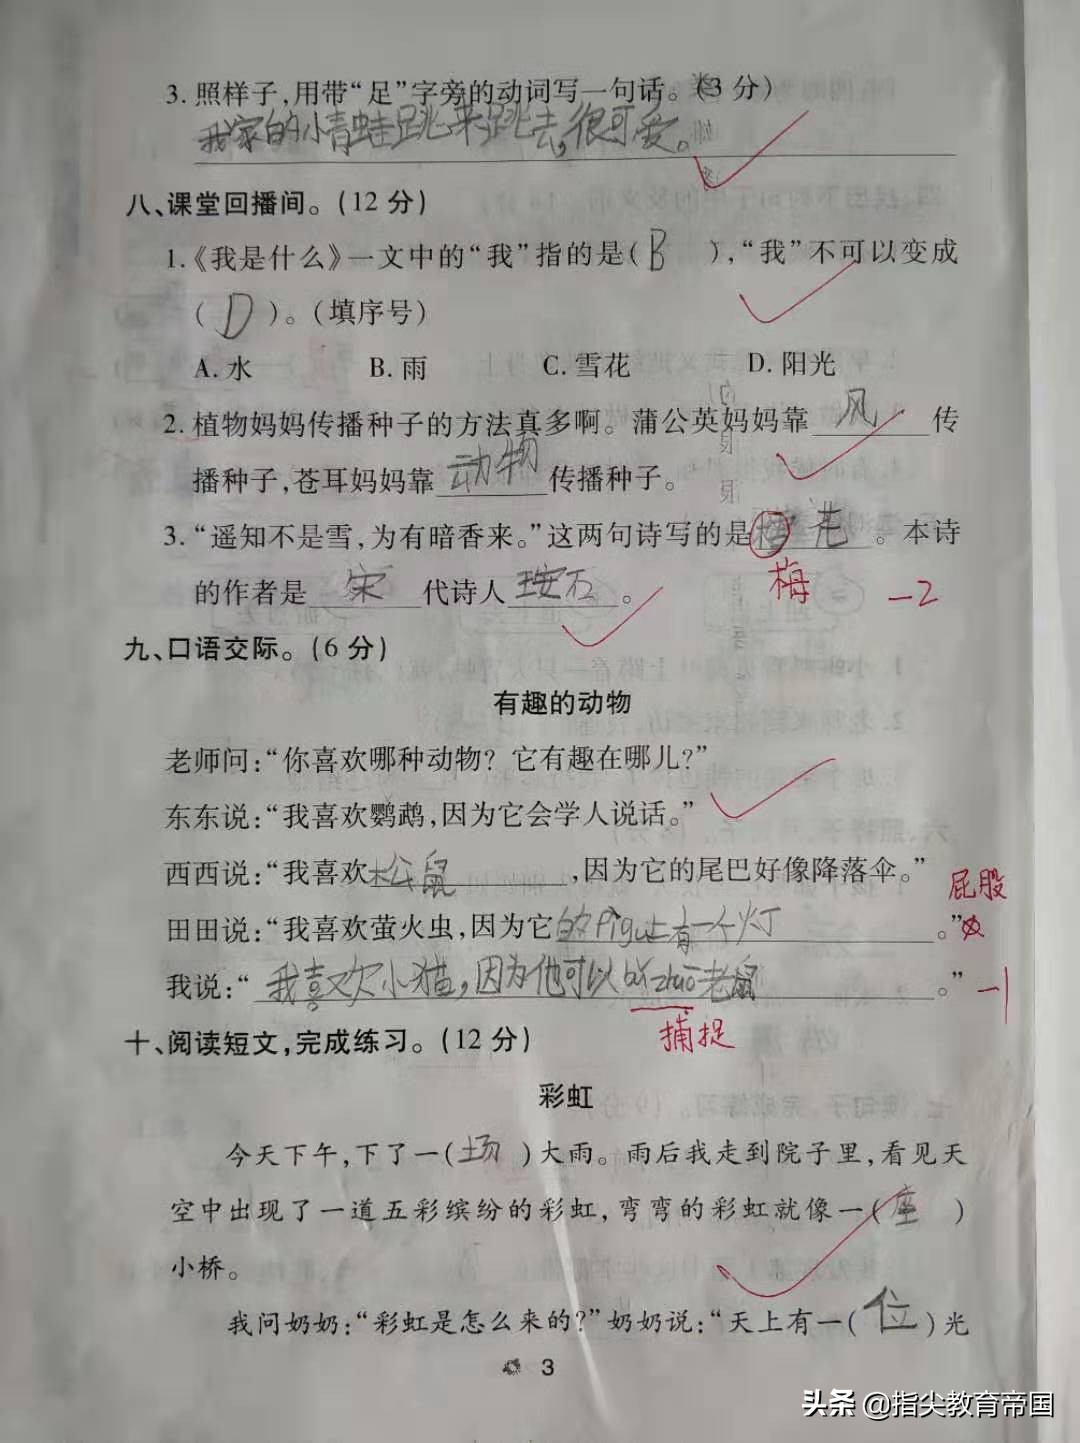 3. 照样子,用带“足”字旁的动词写一句话。(3 分)
我家的小青蛙跳来跳去,很可爱。
八、课堂回播间。(12 分)
1.《我是什么》一文中的“我”指的是( B ),“我”不可以变成
( D )。(填序号)
A. 水 B. 雨 C. 雪花 D. 阳光
2. 植物妈妈传播种子的方法真多啊。蒲公英妈妈靠 风 传
播种子,苍耳妈妈靠 动物 传播种子。
3. “遥知不是雪,为有暗香来。”这两句诗写的是 花 。本诗
梅
的作者是 宋 代诗人 王安石 。 -2
九、口语交际。(6 分)
有趣的动物
老师问:“你喜欢哪种动物? 它有趣在哪儿?”
东东说:“我喜欢鹦鹉,因为它会学人说话。”
西西说:“我喜欢 松鼠 ,因为它的尾巴好像降落伞。”
屁股
田田说:“我喜欢萤火虫,因为它的Pìgu上有一个灯 。”
我说:“ 我喜欢小猫,因为他可以 老鼠 。” -1
捕捉
十、阅读短文,完成练习。(12 分)
彩虹
今天下午,下了一( 场 )大雨。雨后我走到院子里,看见天
空中出现了一道五彩缤纷的彩虹,弯弯的彩虹就像一( 座 )
小桥。
我问奶奶:“彩虹是怎么来的?”奶奶说:“天上有一( 位 )光
3
头条 @指尖教育帝国